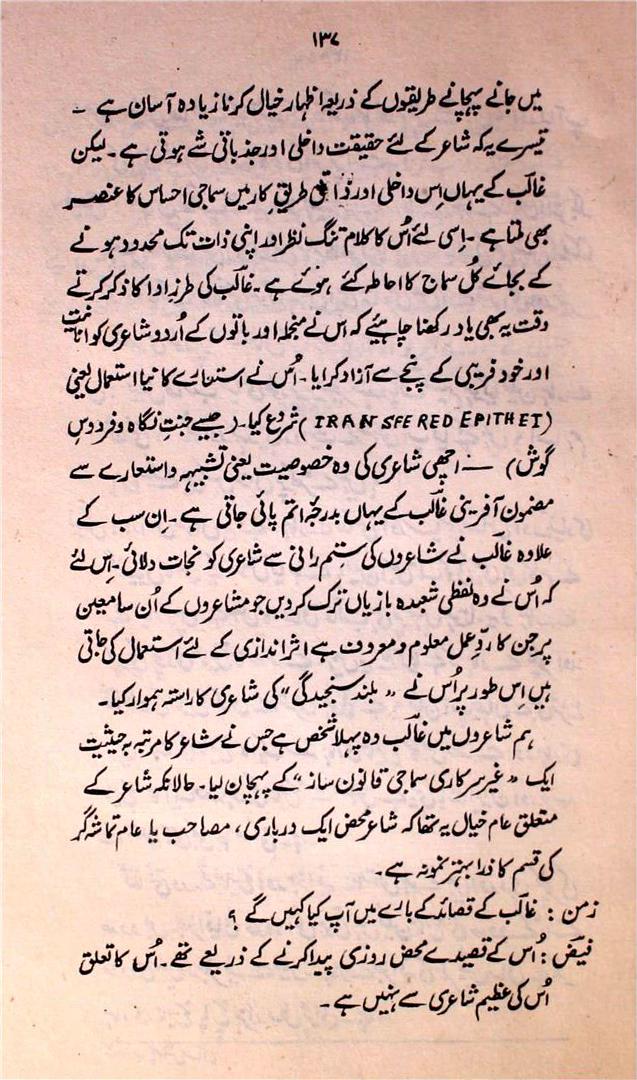 ۱۳۷
میں جانے پہچانے طریقوں کے ذریعہ اظہار خیال کرنا زیادہ آسان ہے ۔
تیسرے یہ کہ شاعر کے لئے حقیقت داخلی اور جذباتی شے ہوتی ہے ۔ لیکن
غالب کے یہاں اِس داخلی اور ذاتی طریقِ کار میں سماجی احساس کا عنصر
بھی ملتا ہے ۔ اِسی لئے اُس کا کلام تنگ نظر اور اپنی ذات تک محدود ہونے
کے بجائے کُل سماج کا احاطہ کئے ہوئے ہے ۔ غالب کی طرزِ ادا کا ذکر کرتے
وقت یہ بھی یاد رکھنا چاہئیے کہ اس نے منجملہ اور باتوں کے اُردو شاعری کو انانیت
اور خود فریبی کے پنجے سے آزاد کرایا ۔ اُس نے استعارے کا نیا استعمال یعنی
(TRANSFERED EPITHET) شروع کیا ۔ (جیسے جنتِ نگاہ و فردوسِ
گوش) ــ اچھی شاعری کی وہ خصوصیت یعنی تشبیہہ و استعارے سے
مضمون آفرینی غالب کے یہاں بدرجۂ اتم پائی جاتی ہے ۔ اِن سب کے
علاوہ غالب نے شاعروں کی ستِم رانی سے شاعری کو نجات دلائی ۔ اِس لئے
کہ اُس نے وہ لفظی شعبدہ بازیاں ترک کر دیں جو مشاعروں کے اُن سامعین
پر جن کا ردِّ عمل معلوم و معروف ہے اثر اندازی کے لئے استعمال کی جاتی
ہیں اِس طور پر اُس نے "بلند سنجیدگی" کی شاعری کا راستہ ہموار کیا ۔
ہم شاعروں میں غالب وہ پہلا شخص ہے جس نے شاعر کا مرتبہ بہ حیثیت
ایک "غیر سرکاری سماجی قانون ساز" کے پہچان لیا ۔ حالانکہ شاعر کے
متعلق عام خیال یہ تھا کہ شاعر محض ایک درباری، مصاحب یا عام تماشہ گر
کی قسم کا ذرا بہتر نمونہ ہے ۔
زمن : غالب کے قصائد کے بارے میں آپ کیا کہیں گے ؟
فیض : اُس کے قصیدے محض روزی پیدا کرنے کے ذریعے تھے ۔ اُس کا تعلق
اُس کی عظیم شاعری سے نہیں ہے ۔